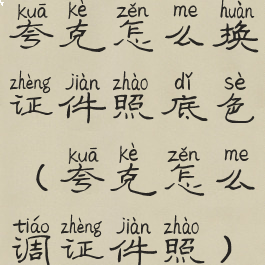 kuā kè zěn me huàn
夸克怎么换
zhèng jiàn zhào dǐ sè
证件照底色
kuā kè zěn me
（夸克怎么
tiáo zhèng jiàn zhào
调证件照）